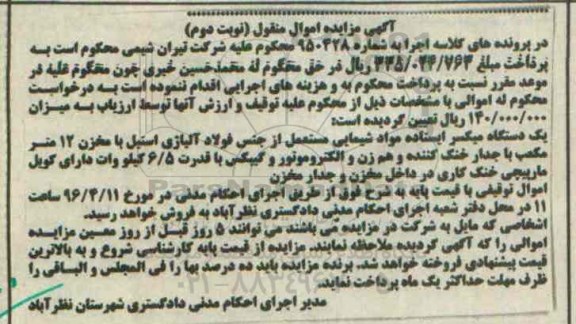 آگهی مزایده اموال منقول (نوبت دوم)
در پرونده های کلاسه اجرا به شماره ۹۵۰۴۲۸ محکوم علیه شرکت تیران شیمی محکوم است به
پرداخت مبلغ ۳۳۵/۰۴۴/۷۶۳ ریال در حق محکوم له محمدحسین خیری چون محکوم علیه در
موعد مقرر نسبت به پرداخت محکوم به و هزینه های اجرایی اقدام ننموده است به درخواست
محکوم له اموالی با مشخصات ذیل از محکوم علیه توقیف و ارزش آنها توسط ارزیاب به میزان
۱۴۰/۰۰۰/۰۰۰ ریال تعیین گردیده است:
یک دستگاه میکسر ایستاده مواد شیمیایی مستعمل از جنس فولاد آلیاژی استیل با مخزن ۱۲ متر
مکعب با جدار خنک کننده و هم زن و الکتروموتور و گیبکس با قدرت ۶/۵ کیلو وات دارای کویل
مارپیچی خنک کاری در داخل مخزن و جدار مخزن
اموال توقیفی با قیمت پایه به شرح فوق از طریق اجرای احکام مدنی در مورخ ۹۶/۴/۱۱ ساعت
۱۱ در محل دفتر شعبه اجرای احکام مدنی دادگستری نظرآباد به فروش خواهد رسید.
اشخاصی که مایل به شرکت در مزایده می باشند می توانند ۵ روز قبل از روز معین مزایده
اموالی را که آگهی گردیده ملاحظه نمایند. مزایده از قیمت پایه کارشناسی شروع و به بالاترین
قیمت پیشنهادی فروخته خواهد شد. برنده مزایده باید ده درصد بها را فی المجلس و الباقی را
ظرف مهلت حداکثر یک ماه پرداخت نماید.
مدیر اجرای احکام مدنی دادگستری شهرستان نظرآباد